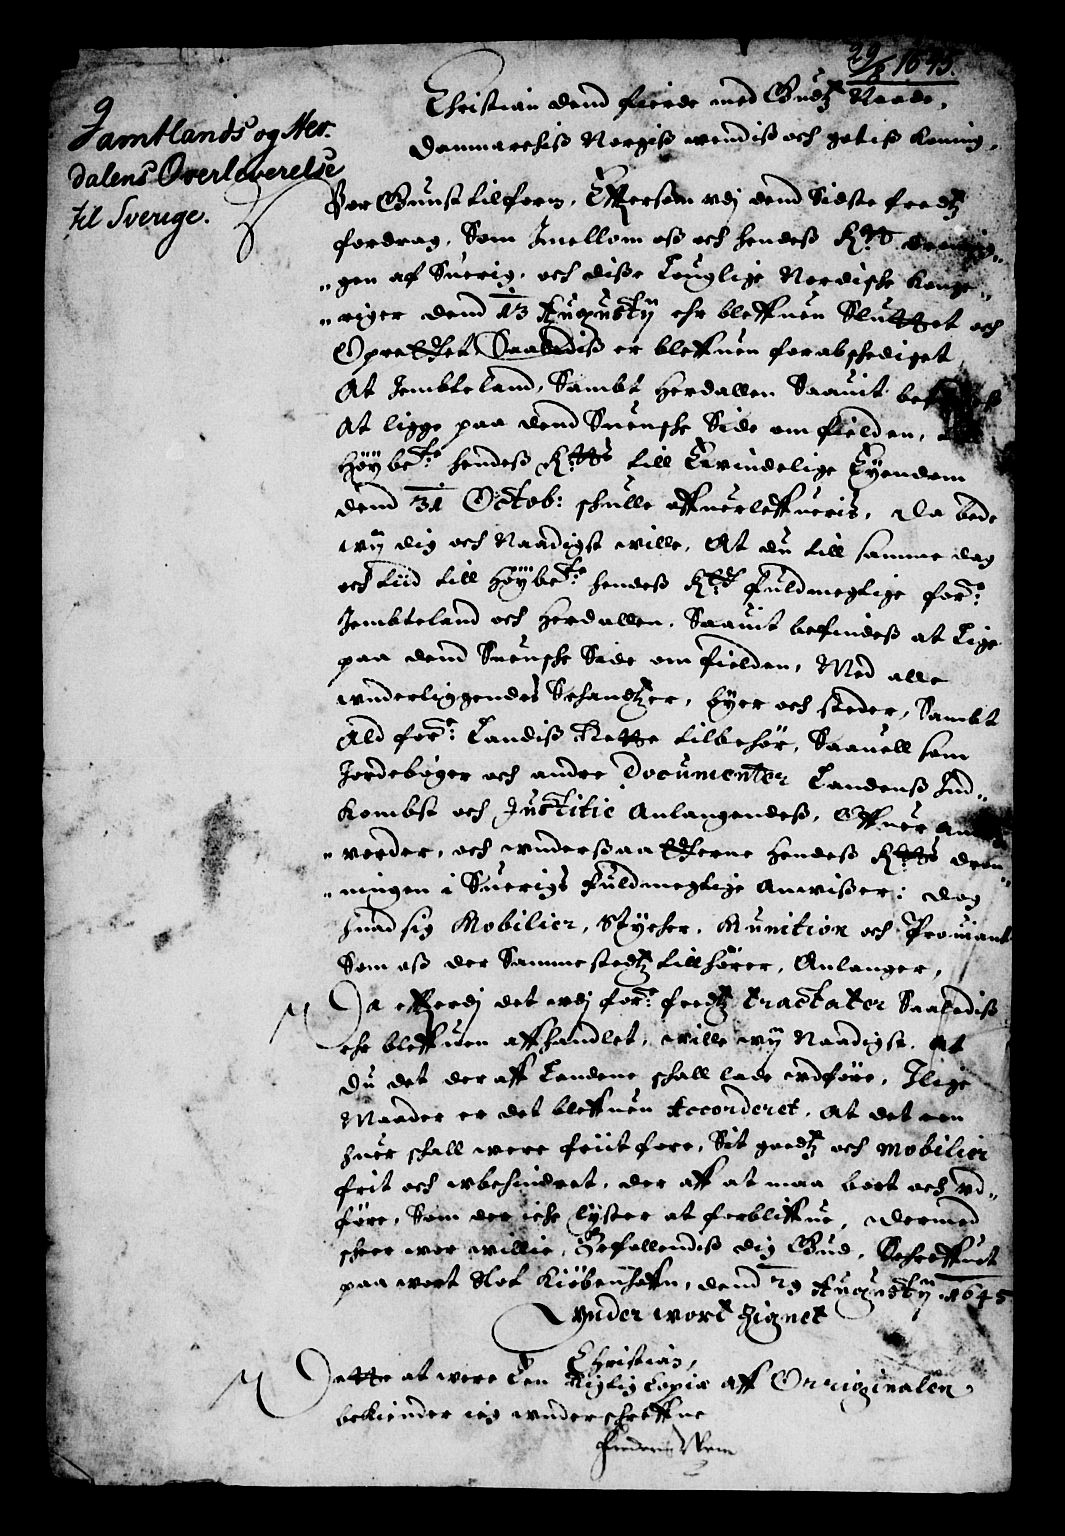 29/8 1645.
Jamtlands og Her-
dalens Overleverelse
til Sverige.
Christian dend fierde med Gudtz Naade,
Danmarchiß Norgiß wendiß och gotiß Koning,
Vor Gunst tilforn, Effersom vdj dend Sidste fredtz
fordrag, Som Imellom oß och hendeß K: Dronnin-
gen af Suerig, och diße Louglige Nordische Konge-
riger dend 13 Augusty ehr bleffuen Sluttet och
Oprettet Saalediß er bleffuen forabschediget
At Jembteland, Sambt Herdallen Saauit
At ligge paa dend Suensche Side om fielden,
Høybe:te hendeß K: till Ewindelige Eyendom
dend 31 Octob: schulle offuerleffueris, Da bede
wy dig och Naadigst wille, At du till samme dag
och tiid till Høybe:te hendeß K: fuldmegtige for:ne
Jembteland och Herdallen, Saauit befindeß at Lige
paa dend Suensche Side om fielden, Med alle
wnderliggendes Schandtzer, byer och steder, Sambt
Ald for:ne Landiß Rette tilbehør, Saauell som
Jordebøger och andre Documenter Landenß Ind-
kombst och Justitie Anlangendeß, Offuer ant-
vorder, och wnderßaatterne Hendeß K: Dron-
ningen i Suerigs fuldmegtige Anwißer: Dog
huad sig Mobilier, Stycher, Munition och Prouiant
Som oß der Sammestedtz tillhører, Anlanger,
Da efferdj det vdj for:ne fredtz tractater Saalediß
ehr bleffuen affhandlet, wille wy Naadigst, At
du det der aff Landene schall lade vdføre, Ilige
Maader er det bleffuen Accorderet, At det een
huer schall were friit fore, Sit goedtz och mobilier
frit och wbehindret, der aff at maa bort och vd-
føre, Som der iche lyster at forbliffue, Dermed
scheer wor willie, Befallendiß dig Gud, Schreffuit
paa wort Slot Kiøbenhaffn, dend 29 Augusty 1645
Vnder wort Zignet
Christian,
Dette at were Een Rigtig Copie aff Orriginalen
bekiender ieg wnderschreffne